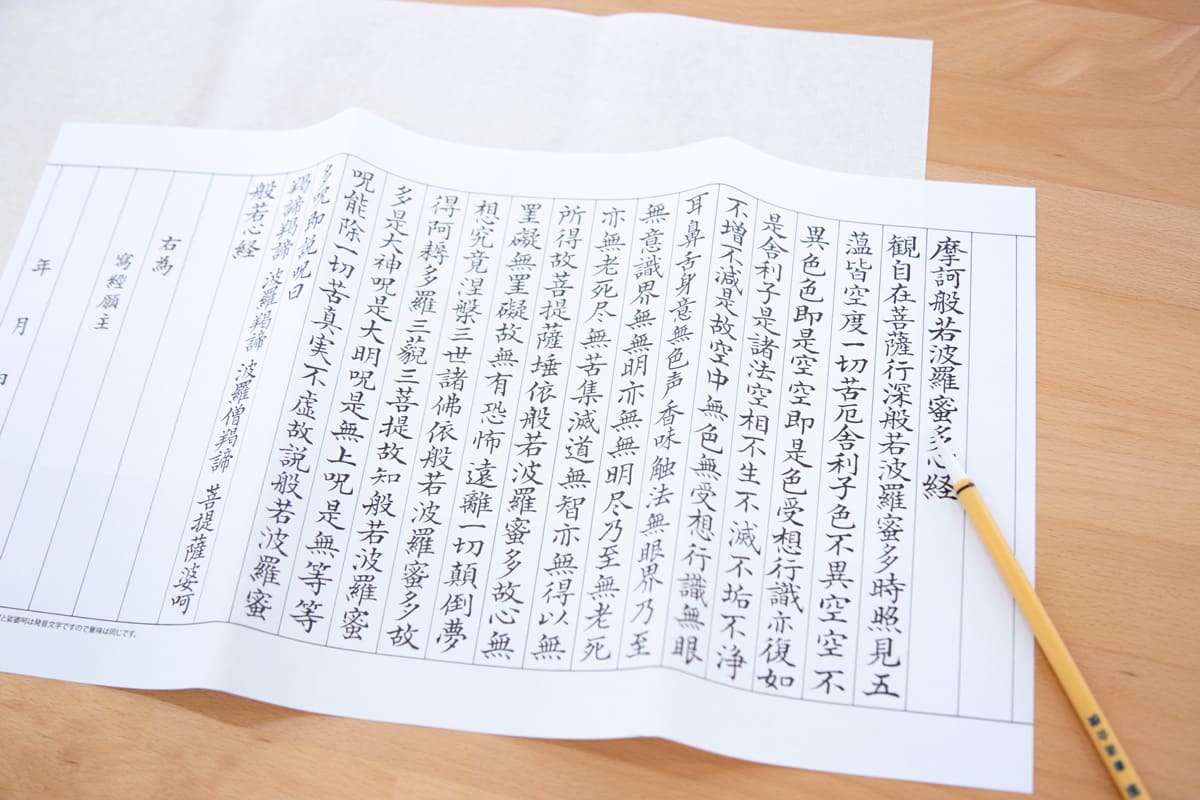 摩訶般若波羅蜜多心経
観自在菩薩行深般若波羅蜜多時照見五
蘊皆空度一切苦厄舎利子色不異空空不
異色色即是空空即是色受想行識亦復如
是舎利子是諸法空相不生不滅不垢不浄
不増不減是故空中無色無受想行識無眼
耳鼻舌身意無色声香味触法無眼界乃至
無意識界無無明亦無無明尽乃至無老死
亦無老死尽無苦集滅道無智亦無得以無
所得故菩提薩埵依般若波羅蜜多故心無
罣礙無罣礙故無有恐怖遠離一切顛倒夢
想究竟涅槃三世諸佛依般若波羅蜜多故
得阿耨多羅三藐三菩提故知般若波羅蜜
多是大神呪是大明呪是無上呪是無等等
呪能除一切苦真実不虚故説般若波羅蜜
多呪即説呪曰
羯諦羯諦 波羅羯諦 波羅僧羯諦 菩提薩婆呵
般若心経
右為
寫經願主
年 月 日
と娑婆呵は発音文字ですので意味は同じです。